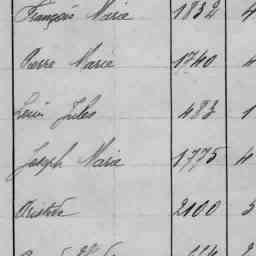 François Marie 1832 4
Pierre Marie 1740 4
Louis Jules 483 1
Joseph Marie 1775 4
Aristide 2100 5